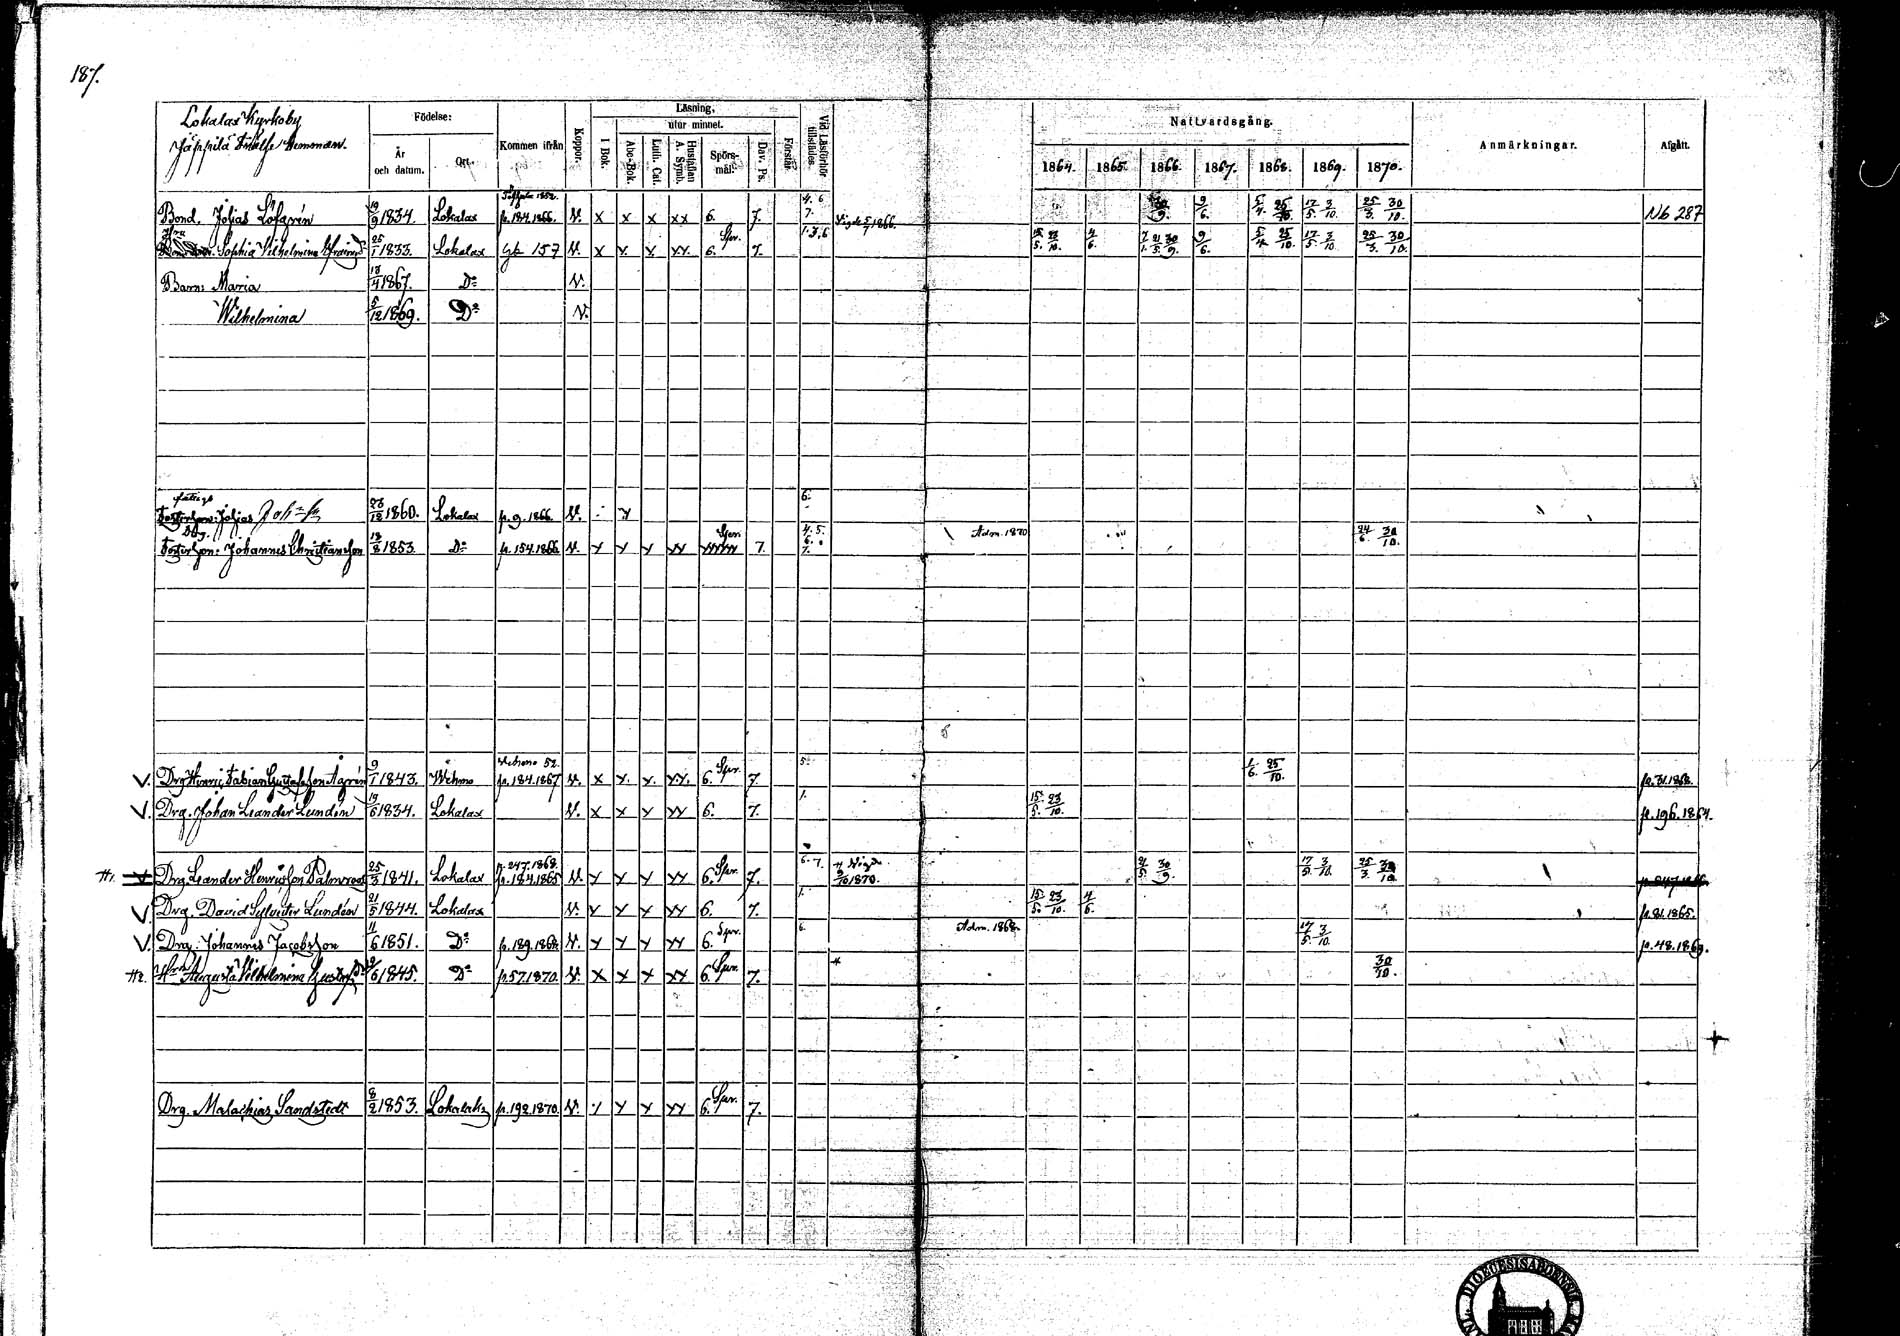 187.
Lokalax Kyrkoby
Jäppilä Frälse Hemman.
Födelse:
År och datum.
Ort.
Kommen ifrån
Koppor.
Läsning,
utur minnet.
I Bok.
Abc-Bok.
Luth. Cat.
Hustaflan A. Symb.
Spörs-mål.
Dav. Ps.
Förstår.
Vid Läsförhör tillstädes.
Nattvardsgång.
1864. 1865. 1866. 1867. 1868. 1869. 1870.
Anmärkningar.
Afgått.
Bond. Josias Löfgrén 19/9 1834. Lokalax p. 184. 1866. V. x x x xx 6. 7. 4. 6 7. Vigde 5/7 1866. 30/9. 9/6. 5/4. 25/10. 17/5. 3/10. 25/3. 30/10. Nb 287
Sophia Vilhelmina 25/1 1833. Lokalax 157 V. x x x xx 6. Spr. 7. 1. 3. 6 15/5. 23/10. 4/6. 7/1. 21/5. 30/9. 9/6. 5/4. 25/10. 17/5. 3/10. 25/3. 30/10.
Barn: Maria 18/4 1867. D:o V.
Wilhelmina 5/12 1869. D:o V.
Josias 28/12 1860. Lokalax p. 9. 1866. V. 6.
Drg.
Fosterson: Johannes Christiansson 13/8 1853. D:o p. 154. 1866. V. x x x xx Spr. 7. 4. 5. 6. 7. Adm. 1870 24/6. 30/10.
V. Drg Henric Fabian Gustafsson Agrén 9/1 1843. Wehmo p. 184. 1867 V. x x. x. xx. 6. Spr. 7. 5. 1/6. 25/10. p. 31. 1868.
V. Drg. Johan Leander Lundén 19/6 1834. Lokalax V. x x x xx 6. 7. 1. 15/5. 23/10. p. 196. 1864.
Drg. Leander Henricsson Palmroos 25/3 1841. Lokalax p. 247. 1868. p. 184. 1865 V. x x x xx 6. Spr. 7. 6. 7. Vigd 1870. 21/5. 30/9. 17/5. 3/10. 25/3. 30/10
V. Drg. David Sylvester Lundén 21/5 1844. Lokalax V. x x x xx 6. 7. 1. 15/5. 23/10. 4/6. p. 81. 1865.
V. Drg. Johannes Jacobsson 11/6 1851. D:o p. 189. 1868. V. x x x xx 6. Spr. 6. Adm. 1868. 17/5. 3/10. p. 48. 1869.
Augusta Vilhelmina 6 1845. D:o p. 57. 1870. V. x x x xx 6. Spr. 7. * 30/10.
Drg. Malachias Sandstedt 8/2 1853. Lokalaks p. 192. 1870. V. x x x xx 6. Spr. 7.
DIOECESIS ABOENSIS